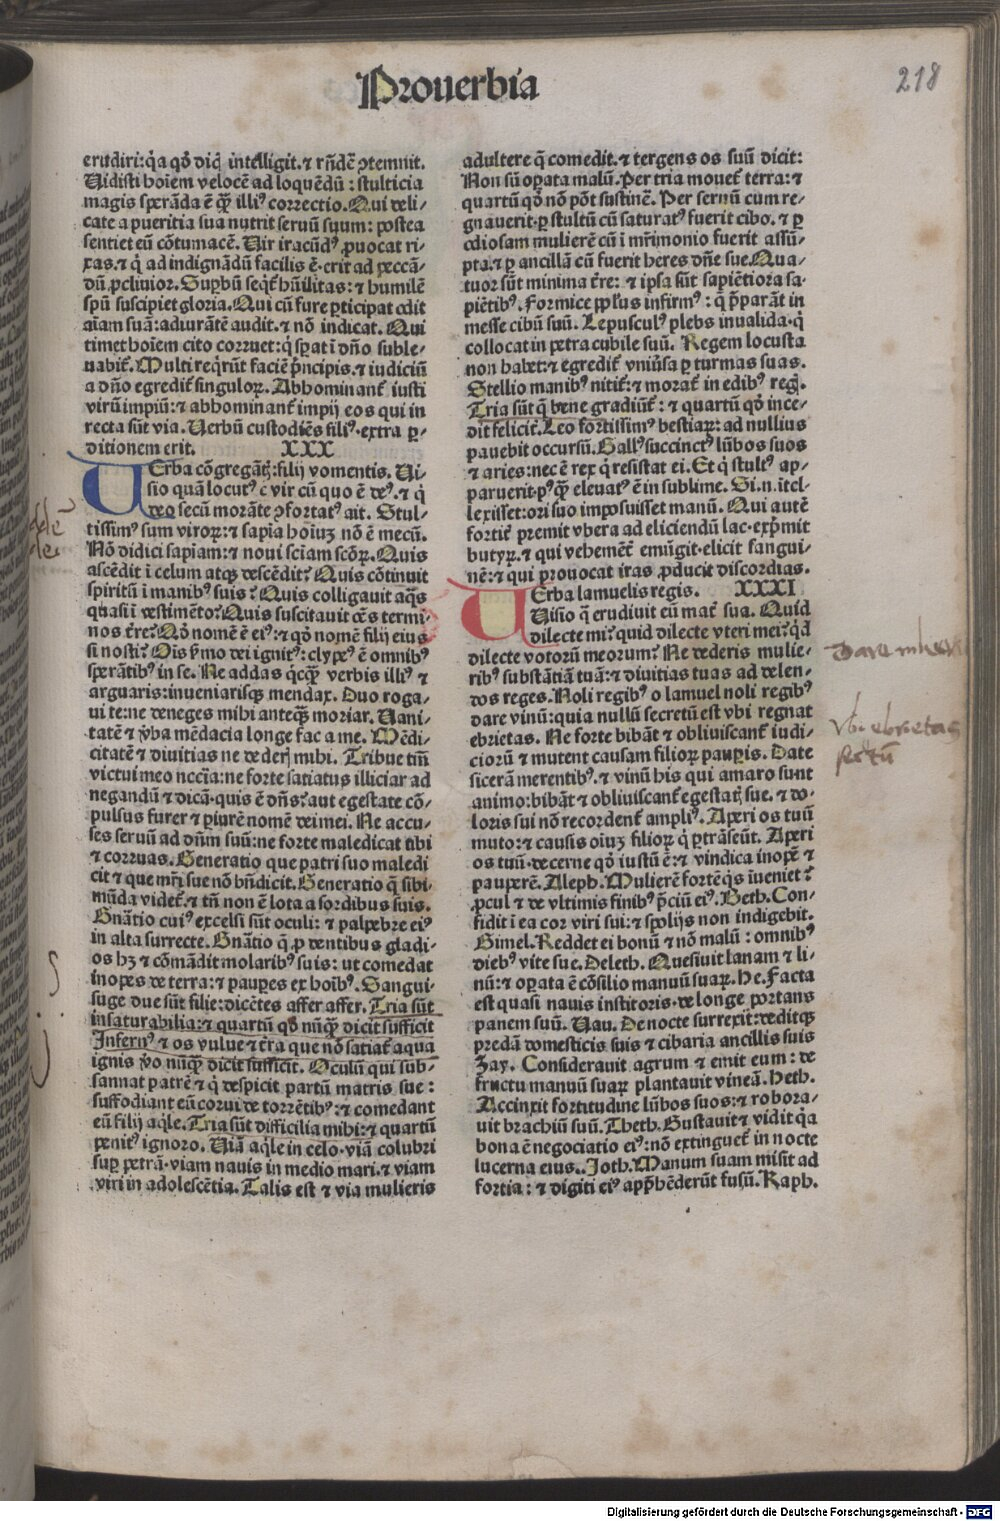 Prouerbia
218
erudiri: q̇a qȯ diċ intelligit. ⁊ rñdẽ ꝯtemnit.
Uidisti hoĩem velocẽ ad loquẽdũ: stulticia
magis sperãda ẽ q̃ꝫ illiꝰ correctio. Qui deli-
cate a pueritia sua nutrit seruũ suum: postea
sentiet eũ cõtumacẽ. Uir iracũdꝰ ꝓuocat ri-
xas. ⁊ q̇ ad indignãdũ facilis ẽ. erit ad peccã-
dũ ꝓcliuior. Suꝑbũ seq̃t̃ hũilitas: ⁊ humilẽ
spũ suscipiet gloria. Qui cũ fure ꝑticipat odit
aĩam suã: adiurãtẽ audit. ⁊ nõ indicat. Qui
timet hoĩem cito corruet: q̇ sꝑat ĩ dño suble-
uabit̃. Multi req̇rũt faciẽ p̃ncipis. ⁊ iudiciũ
a dño egredit̃ singuloꝝ. Abhominant̃ iusti
virũ impiũ: ⁊ abhominant̃ impij eos qui in
recta sũt via. Uerbũ custodiẽs filiꝰ. extra ꝑ-
ditionem erit. XXX
UErba cõgregãtꝭ: filij vomentis. Ui-
sio quã locutꝰ ẽ vir cũ quo ẽ deꝰ. ⁊ q̇
deo secũ morãte ꝯfortatꝰ ait. Stul-
tissimꝰ sum viroꝝ: ⁊ sapĩa hoĩuꝫ nõ ẽ mecũ.
Nõ didici sapĩam: ⁊ noui sciam scõꝝ. Quis
ascẽdit ĩ celum atqꝫ descẽdit? Quis cõtinuit
spiritũ ĩ manibꝰ suis? Quis colligauit aq̃s
quasi ĩ vestimẽto? Quis suscitauit oẽs termi-
nos t̃re? Qȯ nomẽ ẽ eiꝰ: ⁊ qȯ nomẽ filij eius
si nosti? Oĩs ẜmo dei ignitꝰ: clypeꝰ ẽ omnibꝰ
sperãtibꝰ in se. Ne addas q̇cq̃ꝫ verbis illiꝰ ⁊
arguaris: inueniarisqꝫ mendax. Duo roga-
ui te: ne deneges mihi anteq̃ꝫ moriar. Uani-
tatẽ ⁊ ṽba mẽdacia longe fac a me. Mẽdi-
citatẽ ⁊ diuitias ne dederꝭ mihi. Tribue tm̃
victui meo nccĩa: ne forte satiatus illiciar ad
negandũ ⁊ dicã. quis ẽ dñs? aut egestate cõ-
pulsus furer ⁊ ꝑiurẽ nomẽ dei mei. Ne accu-
ses seruũ ad dñm suũ: ne forte maledicat tibi
⁊ corruas. Generatio que patri suo maledi
cit ⁊ que mr̃i sue nõ bñdicit. Generatio q̃ sibi-
mũda videt̃. ⁊ tñ non ẽ lota a sordibus suis.
Gnãtio cuiꝰ excelsi sũt oculi: ⁊ palpebre eiꝰ
in alta surrecte. Gnãtio q̃ ꝓ dentibus gladi-
os hꝫ ⁊ cõmãdit molaribꝰ suis: ut comedat
inopes de terra: ⁊ pauꝑes ex hoĩbꝰ. Sangui-
suge due sũt filie: dicẽtes affer affer. Tria sũt
insaturabilia: ⁊ quartũ qȯ nũq̃ꝫ dicit sufficit
Infernꝰ ⁊ os vulue ⁊ t̃ra que nõ satiat̃ aqua
ignis ṽo nũq̃ꝫ dicit sufficit. Oculũ qui sub-
sannat patrẽ ⁊ q̇ despicit partũ matris sue:
suffodiant eũ corui de torrẽtibꝰ: ⁊ comedant
eũ filij aq̇le. Tria sũt difficilia mihi: ⁊ quartũ
penitꝰ ignoro. Uiã aq̇le in celo. viã colubri
suꝑ petrã. viam nauis in medio mari. ⁊ viam
viri in adolescẽtia. Talis est ⁊ via mulieris
adultere q̃ comedit. ⁊ tergens os suũ dicit:
Non sũ oꝑata malũ. Per tria mouet̃ terra: ⁊
quartũ qȯ nõ põt sustinẽ. Per seruũ cum re-
gnauerit. ꝑ stultũ cũ saturatꝰ fuerit cibo. ⁊ ꝑ
odiosam mulierẽ cũ ĩ mr̃imonio fuerit assũ-
pta. ⁊ ꝑ ancillã cũ fuerit heres dñe sue. Qua-
tuor sũt minima t̃re: ⁊ ipsa sũt sapiẽtiora sa-
piẽtibꝰ. Formice pplus infirmꝰ: q̇ p̃parãt in
messe cibũ suũ. Lepusculꝰ plebs inualida. q̇
collocat in petra cubile suũ. Regem locusta
non habet: ⁊ egredit̃ vniũsa ꝑ turmas suas.
Stellio manibꝰ nitit̃: ⁊ morat̃ in edibꝰ regꝭ.
Tria sũt q̃ bene gradiũt̃: ⁊ quartũ qȯ ince-
dit felicit̃. Leo fortissimꝰ bestiaꝝ: ad nullius
pauebit occursũ. Gallꝰ succinctꝰ lũbos suos
⁊ aries: nec ẽ rex q̇ resistat ei. Et q̇ stultꝰ ap-
paruerit. pꝰq̃ꝫ eleuatꝰ ẽ in sublime. Si.n.itel-
lexisset: ori suo imposuisset manũ. Qui autẽ
fortit̃ premit vbera ad eliciendũ lac. exp̃mit
butyꝝ. ⁊ qui vehemẽt̃ emũgit. elicit sangui-
nẽ: ⁊ qui prouocat iras ꝓducit discordias.
UErba lamuelis regis. XXXI
Uisio q̃ erudiuit eũ mat̃ sua. Quid
dilecte mi? quid dilecte vteri mei? q̇d
dilecte votorũ meorum? Ne dederis mulie-
ribꝰ substãtiã tuã: ⁊ diuitias tuas ad delen-
dos reges. Noli regibꝰ o lamuel noli regibꝰ
dare vinũ: quia nullũ secretũ est vbi regnat
ebrietas. Ne forte bibãt ⁊ obliuiscant̃ iudi-
ciorũ ⁊ mutent causam filioꝝ pauꝑis. Date
sicerã merentibꝰ. ⁊ vinũ his qui amaro sunt
animo: bibãt ⁊ obliuiscant̃ egestatꝭ sue. ⁊ do-
loris sui nõ recordent̃ ampliꝰ. Aperi os tuũ
muto: ⁊ causis oĩuꝫ filioꝝ q̇ ꝑtrãseũt. Aperi
os tuũ. decerne qȯ iustũ ẽ: ⁊ vindica inopẽ ⁊
pauperẽ. Aleph. Mulierẽ fortẽ q̇s inueniet?
ꝓcul ⁊ de vltimis finibꝰ p̃ciũ eiꝰ. Beth. Con-
fidit ĩ ea cor viri sui: ⁊ spolijs non indigebit.
Gimel. Reddet ei bonũ ⁊ nõ malũ: omnibꝰ
diebꝰ vite sue. Deleth. Quesiuit lanam ⁊ li-
nũ: ⁊ oꝑata ẽ cõsilio manuũ suaꝝ. He. Facta
est quasi nauis institoris. de longe portans
panem suũ. Uau. De nocte surrexit: deditqꝫ
predã domesticis suis ⁊ cibaria ancillis suis
Zay. Considerauit agrum ⁊ emit eum: de
fructu manuũ suaꝝ plantauit vineã. Heth.
Accinxit fortitudine lũbos suos: ⁊ robora-
uit brachiũ suũ. Theth. Gustauit ⁊ vidit q̇a
bona ẽ negociatio eiꝰ: nõ extinguet̃ in nocte
lucerna eius.. Joth. Manum suam misit ad
fortia: ⁊ digiti eiꝰ app̃hẽderũt fusũ. Kaph.
vbi ebrietas
Digitalisierung gefördert durch die Deutsche Forschungsgemeinschaft - DFG